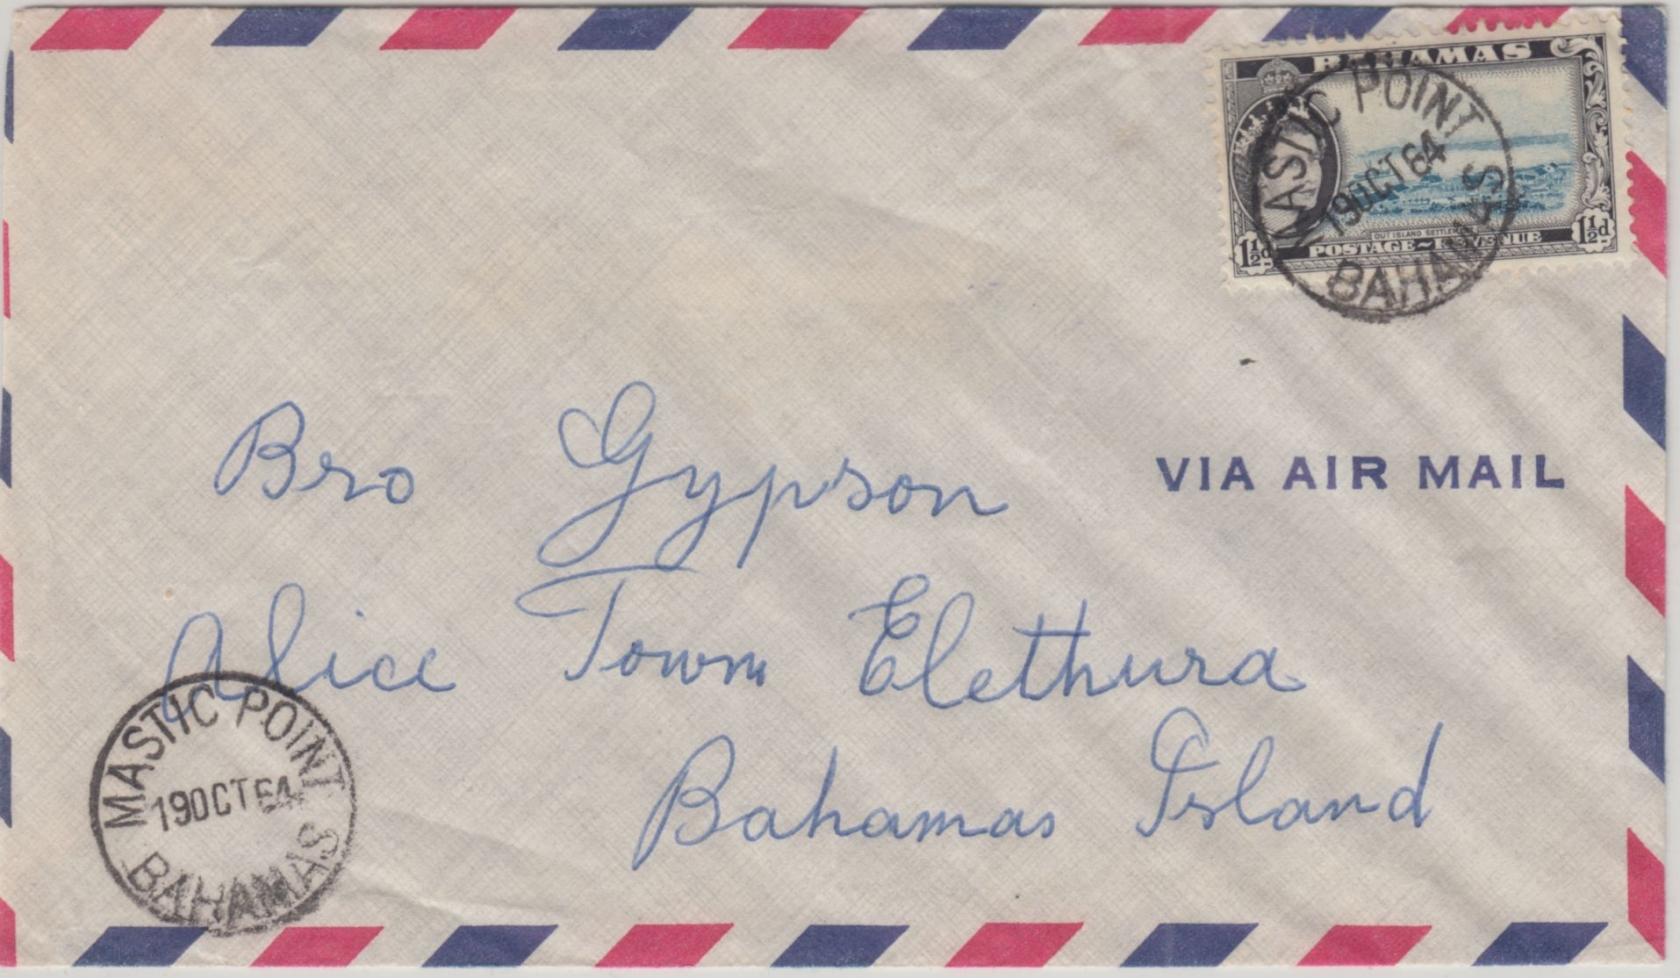 BAHAMAS
OUT ISLAND SETTLEMENT
POSTAGE~REVENUE
1½d
1½d
MASTIC POINT
19 OCT 64
BAHAMAS
VIA AIR MAIL
Bro Gypson
Alice Town Elethura
Bahamas Island
MASTIC POINT
19 OCT 64
BAHAMAS